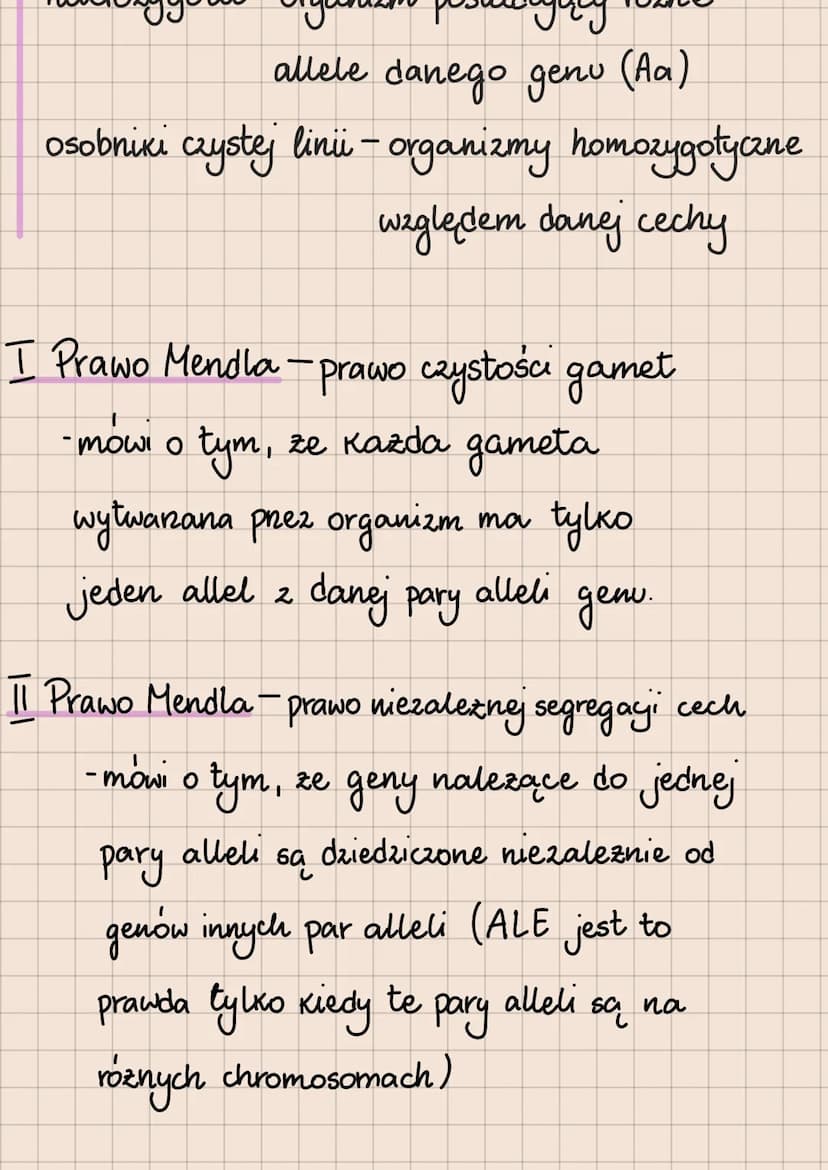 allele danego genu (Aa)
osobniki czystej linii – organizmy homozygotyczne
względem danej cechy
I Prawo Mendla – prawo czystości gamet
- mówi o tym, że każda gameta
wytwarzana przez organizm ma tylko
jeden allel z danej pary alleli genu.
II Prawo Mendla – prawo niezależnej segregacji cech
- mówi o tym, że geny należące do jednej
pary alleli są dziedziczone niezależnie od
genów innych par alleli (ALE jest to
prawda tylko kiedy te pary alleli są na
różnych chromosomach)